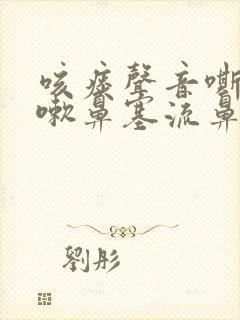 咳痰聲音嘶
嗽鼻塞流鼻
劉彤